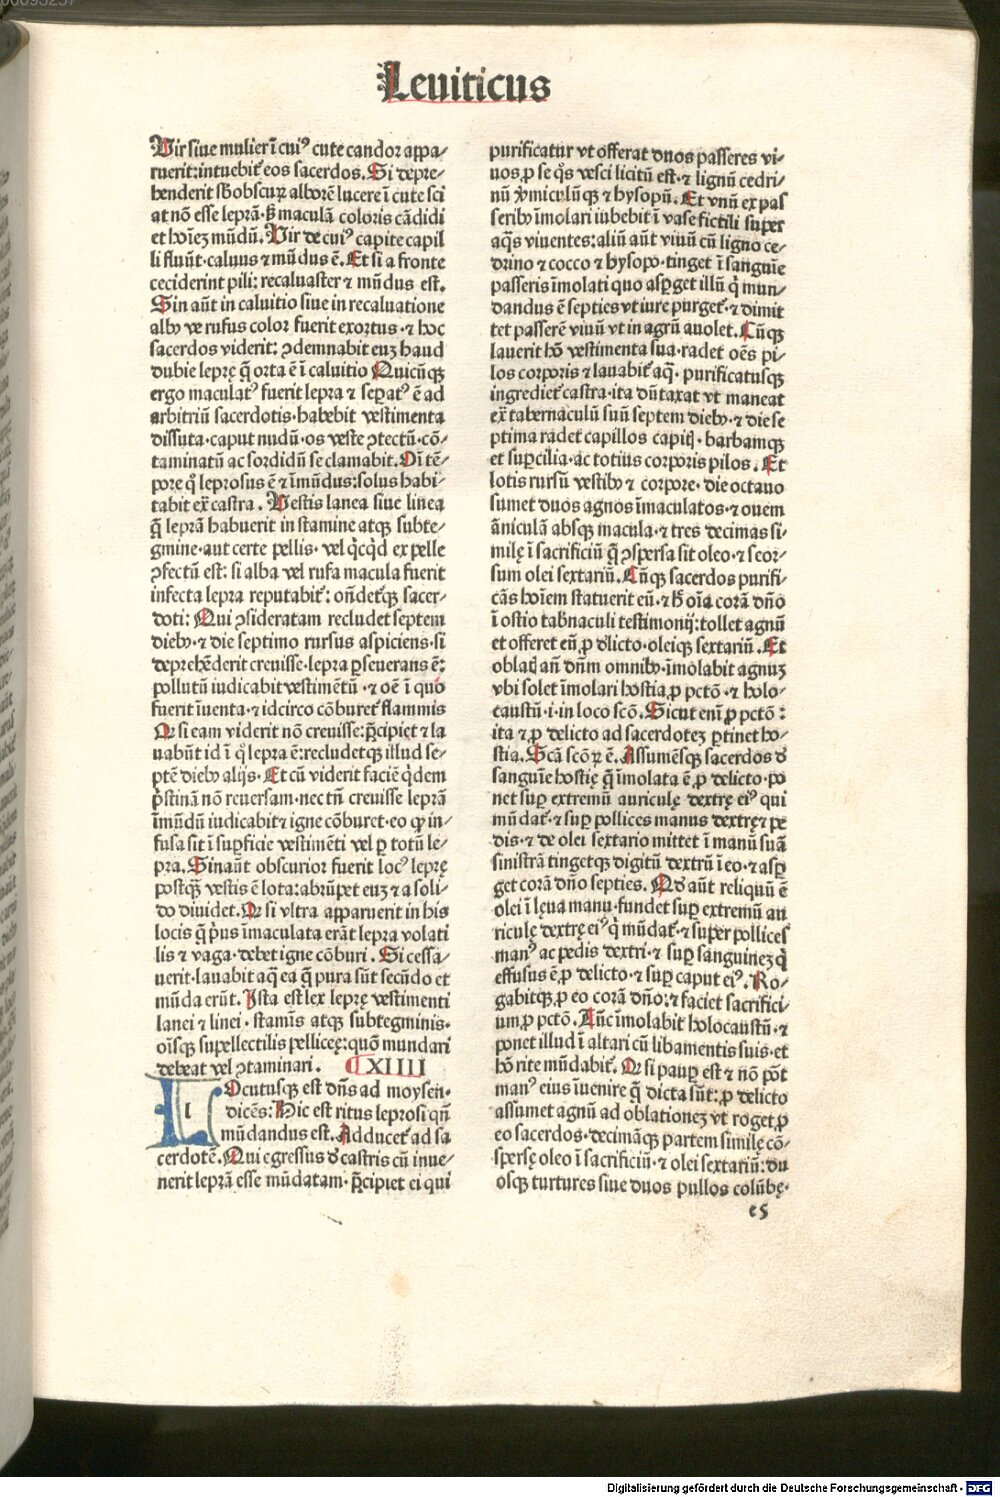 00093257
Leuiticus
Vir siue mulier ī cuiꝰ cute candor appa⸗
ruerit: intuebit᷑ eos sacerdos. Si depre⸗
henderit sb̄obscuꝝ alborē lucere ī cute sci
at nō esse leprā. ß maculā coloris cādidi
et hoīeꝫ mūdū. Vir de cuiꝰ capite capil
li fluūt. caluus ⁊ mūdus ē. Et si a fronte
ceciderint pili: recaluaster ⁊ mūdus est.
Sin aūt in caluitio siue in recaluatione
albꝰ ve rufus color fuerit exortus. ⁊ hoc
sacerdos viderit: ꝯdemnabit euꝫ haud
dubie leprę q̄ orta ē ī caluitio Quicūqꝫ
ergo maculatꝰ fuerit lepra ⁊ sepatꝰ ē ad
arbitriū sacerdotis. habebit vestimenta
dissuta. caput nudū. os veste ꝯtectū. cō⸗
taminatū ac sordidū se clamabit. Oī tē⸗
pore qͦ leprosus ē ⁊ īmūdus: solus habi⸗
tabit ex̄ castra. Vestis lanea siue linea
q̄ leprā habuerit in stamine atqꝫ subte⸗
gmine. aut certe pellis. vel qͥcqͥd ex pelle
ꝯfectū est: si alba vel rufa macula fuerit
infecta lepra reputabit᷑: oñdet᷑qꝫ sacer⸗
doti: Qui ꝯsideratam recludet septem
diebꝰ. ⁊ die septimo rursus aspiciens. si
deprehēderit creuisse. lepra ꝑseuerans ē:
pollutū iudicabit vestimētū. ⁊ oē ī quo
fuerit īuenta. ⁊ idcirco cōburet᷑ flammis
Qꝫ si eam viderit nō creuisse: p̄cipiet ⁊ la
uabūt id ī qͦ lepra ē: recludetqꝫ illud se⸗
ptē diebꝰ alijs. Et cū viderit faciē qͥdem
pͥstinā nō reuersam. nec tñ creuisse leprā
īmūdū iudicabit ⁊ igne cōburet. eo ꝙ in⸗
fusa sit ī suꝑficie vestimēti vel ꝑ totū le⸗
pra. Sin aūt obscurior fuerit locꝰ leprę
postqꝫ̄ vestis ē lota: abrūpet euꝫ ⁊ a soli⸗
do diuidet. Qꝫ si vltra apparuerit in his
locis q̄ pͥus īmaculata erāt lepra volati
lis ⁊ vaga. debet igne cōburi. Si cessa⸗
uerit. lauabit aq̄ ea q̄ pura sūt secūdo et
mūda erūt. Ista est lex leprę vestimenti
lanei ⁊ linei. stamīs atqꝫ subtegminis.
oīsqꝫ supellectilis pellicęę: quō mundari
debeat vel ꝯtaminari. XIIII
LOcutusqꝫ est dñs ad moysen.
dicēs: Hic est ritus leprosi qñ
mūdandus est. Adducet᷑ ad sa
cerdotē. Qui egressus d̓ castris cū inue⸗
nerit leprā esse mūdatam. p̄cipiet ei qui
purificatur vt offerat duos passeres vi⸗
uos ꝓ se qͦs vesci licitū est. ⁊ lignū cedri⸗
nū v̓miculūqꝫ ⁊ hysopū. Et vnū ex pas
seribꝰ īmolari iubebit ī vase fictili super
aq̄s viuentes: aliū aūt viuū cū ligno ce⸗
drino ⁊ cocco ⁊ hysopo. tinget ī sanguīe
passeris īmolati quo asꝑget illū qͥ mun⸗
dandus ē septies vt iure purget᷑. ⁊ dimit
tet passerē viuū vt in agrū auolet. Cūqꝫ
lauerit hō vestimenta sua. radet oēs pi⸗
los corporis ⁊ lauabit᷑ aq̄. purificatusqꝫ
ingrediet᷑ castra. ita dūtaxat vt maneat
ex̄ tabernaculū suū septem diebꝰ. ⁊ die se
ptima radet capillos capitꝭ. barbamqꝫ
et suꝑcilia. ac totius corporis pilos. Et
lotis rursū vestibꝰ ⁊ corpore. die octauo
sumet duos agnos īmaculatos. ⁊ ouem
āniculā absqꝫ macula. ⁊ tres decimas si⸗
milę ī sacrificiū q̄ ꝯspersa sit oleo. ⁊ seor⸗
sum olei sextariū. Cūqꝫ sacerdos purifi⸗
cās hoīem statuerit eū. ⁊ h̄ oīa corā dño
ī ostio tab̄naculi testimonij: tollet agnū
et offeret eū ꝓ d̓licto. oleiqꝫ sextariū. Et
oblatꝭ añ dñm omnibꝰ. īmolabit agnuꝫ
vbi solet īmolari hostia ꝓ pctō. ⁊ holo⸗
caustū. i. in loco scō. Sicut enī ꝓ pctō:
ita ⁊ ꝓ delicto ad sacerdoteꝫ ꝑtinet ho⸗
stia. Scā scōꝝ ē. Assumēsqꝫ sacerdos d̓
sanguīe hostię q̄ īmolata ē ꝓ delicto. po
net suꝑ extremū auriculę dextrę eiꝰ qui
mūdat᷑. ⁊ suꝑ pollices manus dextrę ⁊ pe
dis. ⁊ de olei sextario mittet ī manū suā
sinistrā tingetqꝫ digitū dextrū ī eo. ⁊ asꝑ
get corā dño septies. Qd̓ aūt reliquū ē
olei ī lęua manu. fundet suꝑ extremū au
riculę dextrę eiꝰ qͥ mūdat᷑. ⁊ super pollices
manꝰ ac pedis dextri. ⁊ suꝑ sanguineꝫ qͥ
effusus ē ꝓ delicto. ⁊ suꝑ caput eiꝰ. Ro⸗
gabitqꝫ ꝓ eo corā dño: ⁊ faciet sacrifici⸗
um ꝓ pctō. Tūc īmolabit holocaustū. ⁊
ponet illud ī altari cū libamentis suis. et
hō rite mūdabit᷑. Qꝫ si pauꝑ est ⁊ nō pōt
manꝰ eius īuenire q̄ dicta sūt: ꝓ delicto
assumet agnū ad oblationeꝫ vt roget ꝓ
eo sacerdos. decimāqꝫ partem similę cō⸗
spersę oleo ī sacrificiū. ⁊ olei sextariū: du
osqꝫ turtures siue duos pullos colūbę.
e5
Digitalisierung gefördert durch die Deutsche Forschungsgemeinschaft - DFG